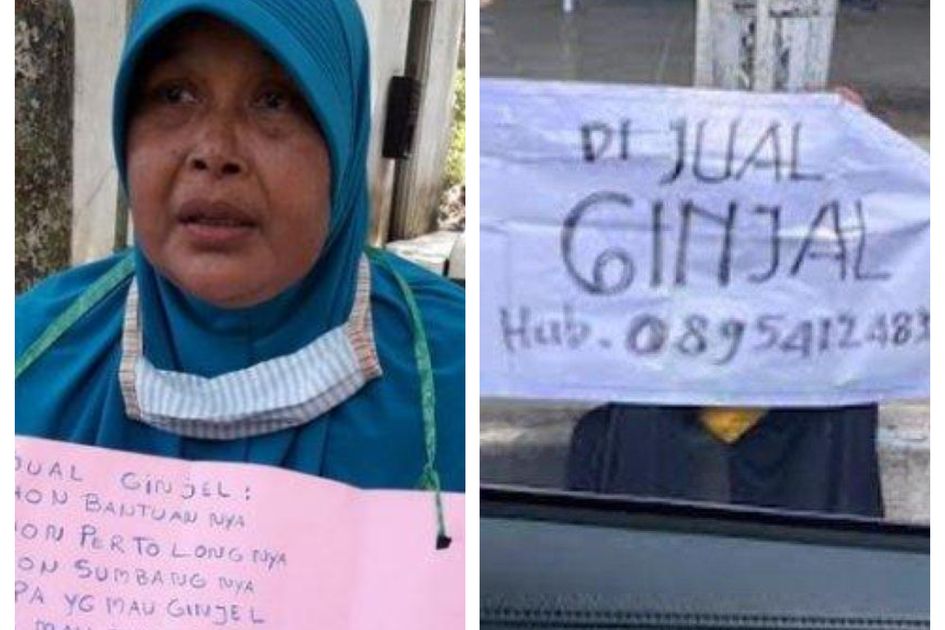 JUAL GINJEL :
HON BANTUAN NYA
HON PERTOLONG NYA
ON SUMBANG NYA
PA YG MAU GINJEL
DI JUAL
GINJAL
Hub. 0895412483